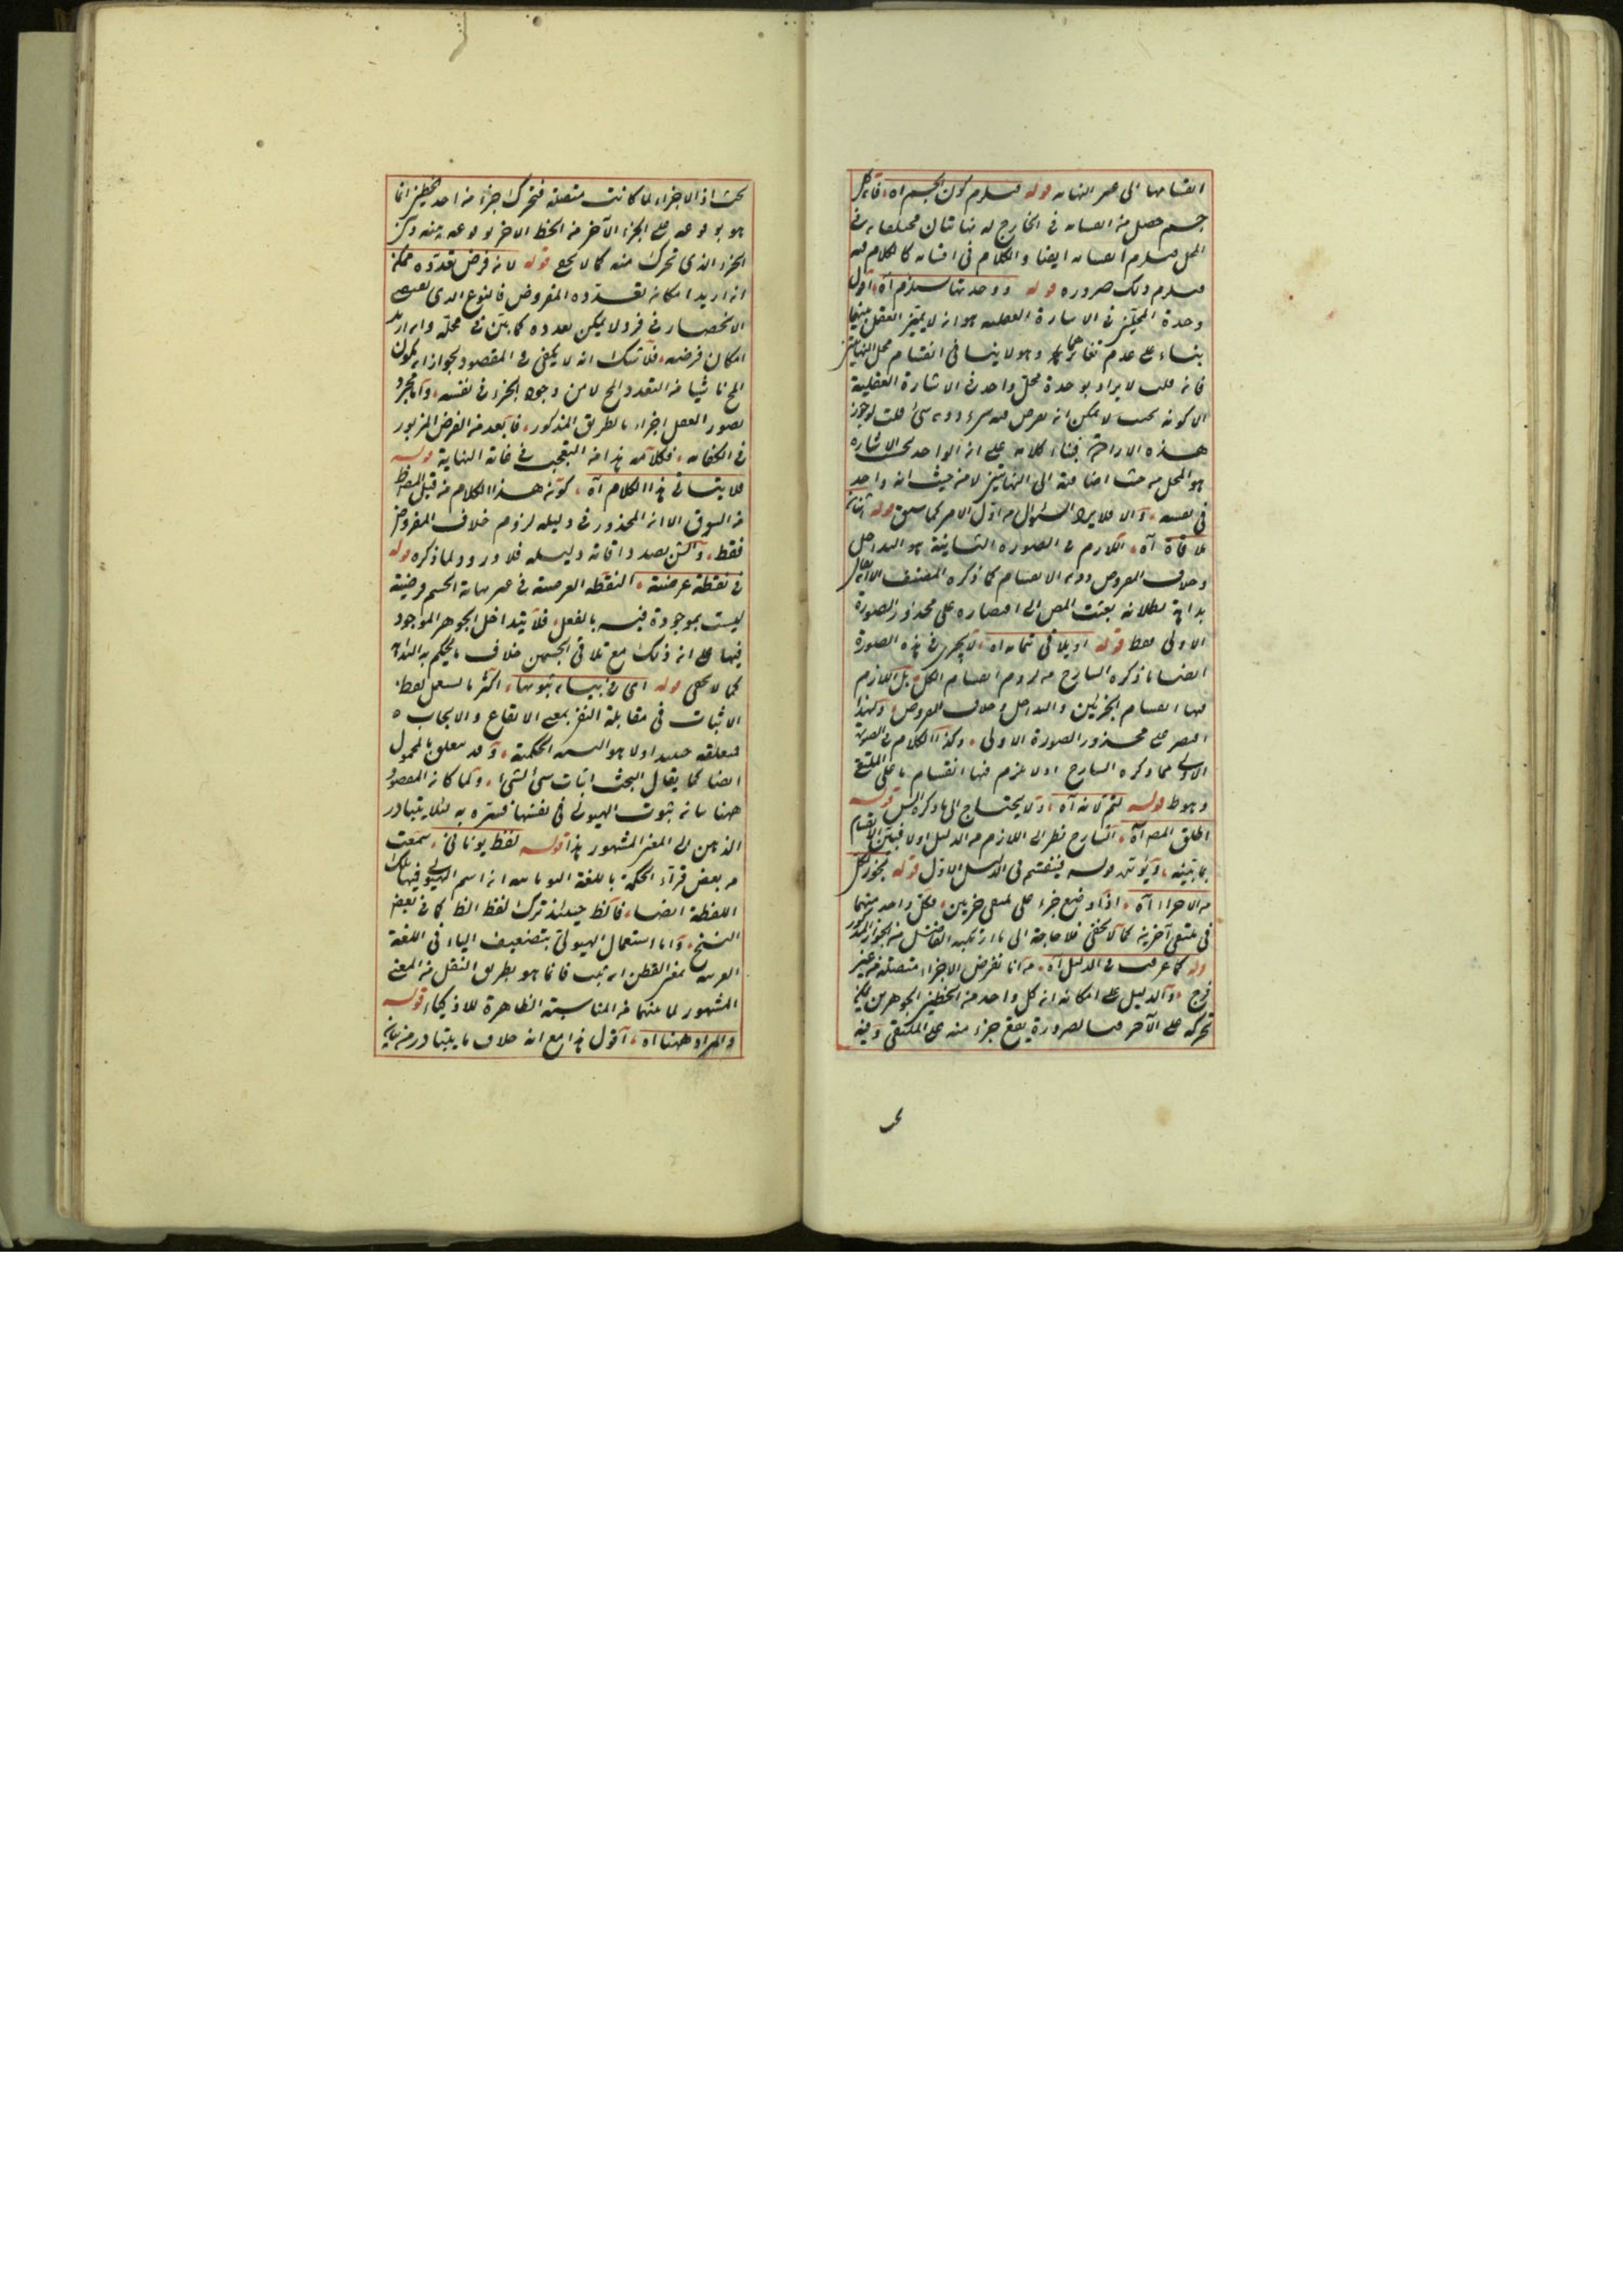 انقسامها الى غير النهاية قوله فيلزم كون الجسم اه فان كل
جسم حصل فيه انقسام في الخارج له نهايتان
المحل فيلزم انقسامه ايضا والكلام في اقسامه كالكلام فيه
فيلزم ذلك ضرورة قوله ووحدتها يستلزم آه اقول
وحدة في الاشارة العقلية هو انه لا يميز العقل بينهما
بناء على عدم تغايرهما وهو لا ينافي انقسام محل النهايتين
فان قلت لا يراد بوحدة محل واحد في الاشارة العقلية
الا كونه بحيث لا يمكن ان يفرض فيه شيء دون شيء قلت لو جوز
هذه الارادة فبناء كلامه على ان الواحد بحسب الاشارة
هو المحل من حيث اضافته الى النهايتين لا من حيث انه واحد
في نفسه والا فلا يرد السؤال من اول الامر كما سبق قوله
ملاقاة آه اللازم في الصورة الثانية هو التداخل
وخلاف المفروض دون الانقسام كما ذكره المصنف الا ان
بداهة بطلانه بعثت المص الى اقتصاره على محذور الصورة
الاولى فقط قوله او يلاقي تمامه اه لا يجري في هذه الصورة
ايضا ما ذكره الشارح من لزوم انقسام الكل بل اللازم
فيها انقسام الجزئين والتداخل وخلاف المفروض ولهذا
اقتصر على محذور الصورة الاولى وكذا الكلام في الصورة
الاولى مما ذكره الشارح اذ لا يلزم فيها انقسام ما على الملتقى
وهو ط قوله لتم لانه آه اذ لا يحتاج الى ما ذكره قوله
اطلق المص آه الشارح نظر الى اللازم من الدليل اولا فبين الانقسام
بما بينه ويؤيده قوله فينقسم في الدليل الاول قوله يجوز لكل
من الاجزاء آه اذا وضع جزء على ملتقى جزئين فكل واحد منهما
في ملتقى آخرين كما لا يخفى فلا حاجة الى ما ارتكبه الفاضل من الجواز المذكور
قوله كما عرفت في الدليل آه من انا نفرض الاجزاء متصلة من غير
فرج والدليل على امكانه ان كل واحد من الخطين الجوهريين يمكن
تحركه على الآخر فبالضرورة يقع جزء منه على الملتقى وفيه
بحث
بحث اذ الاجزاء لما كانت متصلة فتحرك جزء من احد الخطين انما
هو بوقوعه على الجزء الآخر من الخط الاخر
الجزء الذي تحرك منه كما لا يخفى قوله لانه فرض تعدده ممكن
ان اريد امكان تعدده المفروض فالنوع الذي يقتضي
الانحصار في فرد لا يمكن تعدده كما بين في محله وان اريد
امكان فرضه فلا شك انه لا يكفي في المقصود لجواز ان يكون
المح ناشيا من التعدد المح لا من وجود الجزء في نفسه واما مجرد
تصور العقل اجزاء بالطريق المذكور فابعد من الفرض المزبور
في الكفاية فكلامه هذا من التعجب في غاية النهاية قوله
فلا يتأتى هذا الكلام آه كونه هذا الكلام من قبل المص ظ
من السوق الا ان المحذور في دليله لزوم خلاف المفروض
فقط والش بصدد اقامة دليله فلا ورود لما ذكره قوله
في نقطة عرضية النقطة العرضية في غير نهاية الجسم فرضية
ليست بموجودة فيه بالفعل فلا يتداخل الجوهر الموجود
فيها على ان ذلك مع تلاقي الجسمين خلاف ما يحكم به البداهة
كما لا يخفى قوله اى في بيان ثبوتها اكثر ما يستعمل لفظ
الاثبات في مقابلة النفي بمعنى الايقاع والايجاب
فمتعلقه حينئذ اولا هو النسبة الحكمية وقد يتعلق بالمحمول
ايضا كما يقال البحث اثبات شيء لشيء وكما كان المقصود
ههنا بيان ثبوت الهيولى في نفسها فسره به لئلا يتبادر
الذهن الى المعنى المشهور هذا قوله لفظ يوناني سمعت
من بعض قراء الحكمة باللغة اليونانية ان اسم الهيولى فيها تلك
اللفظة ايضا فالظ حينئذ ترك لفظ الظ كما في بعض
النسخ واما استعمال الهيولى بتضعيف الياء في اللغة
العربية بمعنى القطن ان ثبت فانما هو بطريق النقل من المعنى
المشهور لما بينهما من المناسبة الظاهرة للاذكياء قوله
والمراد ههنا اه اقول هذا مع انه خلاف ما يتبادر من بيانه